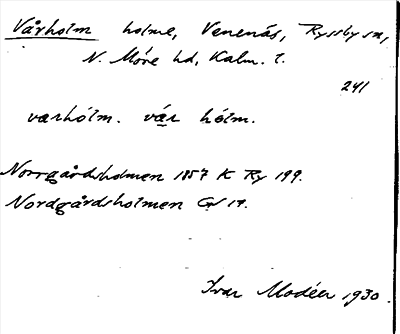 Vårholm holme, Venenäs, Ryssby sn,
N. Möre hd, Kalm. l.
241
varhólm. vár hólm.
Norrgårdsholmen 1857 K Ry 199.
Nordgårdsholmen 19.
Ivar Modéer 1930.